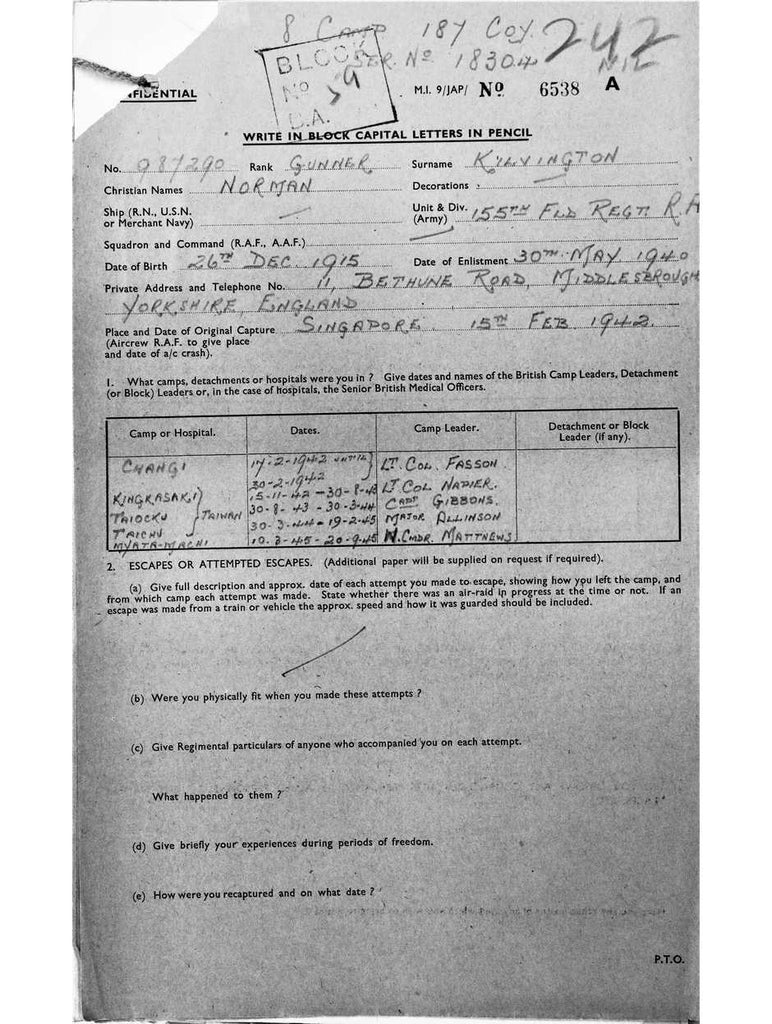 8 CAMP 187 COY. 242
SER. NO 18304
BLOCK
NO 59
D.A.
NFIDENTIAL
M.I. 9/JAP/ No 6538 A
WRITE IN BLOCK CAPITAL LETTERS IN PENCIL
No. 987290 Rank GUNNER Surname KILVINGTON
Christian Names NORMAN Decorations
Ship (R.N., U.S.N. or Merchant Navy)
Unit & Div. (Army) 155TH FLD REGT. R.A
Squadron and Command (R.A.F., A.A.F.)
Date of Birth 26TH DEC. 1915 Date of Enlistment 30TH MAY 1940
Private Address and Telephone No. 11, BETHUNE ROAD, MIDDLESBROUGH
YORKSHIRE, ENGLAND
Place and Date of Original Capture SINGAPORE 15TH FEB 1942.
(Aircrew R.A.F. to give place
and date of a/c crash).
1. What camps, detachments or hospitals were you in ? Give dates and names of the British Camp Leaders, Detachment
(or Block) Leaders or, in the case of hospitals, the Senior British Medical Officers.
Camp or Hospital. Dates. Camp Leader. Detachment or Block Leader (if any).
CHANGI 17-2-1942 UNTIL LT. COL. FASSON.
30-2-1942
KINGKASAKI 15-11-42 - 30-8-43 LT. COL NAPIER.
TAIOCKU } TAIWAN 30-8-43 - 30-3-44 CAPT GIBBONS.
TAICHU 30-3-44 - 19-2-45 MAJOR ALLINSON
MYATA-MACHI 10-3-45 - 20-9-45 W. CMDR. MATTNEWS
2. ESCAPES OR ATTEMPTED ESCAPES. (Additional paper will be supplied on request if required).
(a) Give full description and approx. date of each attempt you made to escape, showing how you left the camp, and
from which camp each attempt was made. State whether there was an air-raid in progress at the time or not. If an
escape was made from a train or vehicle the approx. speed and how it was guarded should be included.
(b) Were you physically fit when you made these attempts ?
(c) Give Regimental particulars of anyone who accompanied you on each attempt.
What happened to them ?
(d) Give briefly your experiences during periods of freedom.
(e) How were you recaptured and on what date ?
P.T.O.